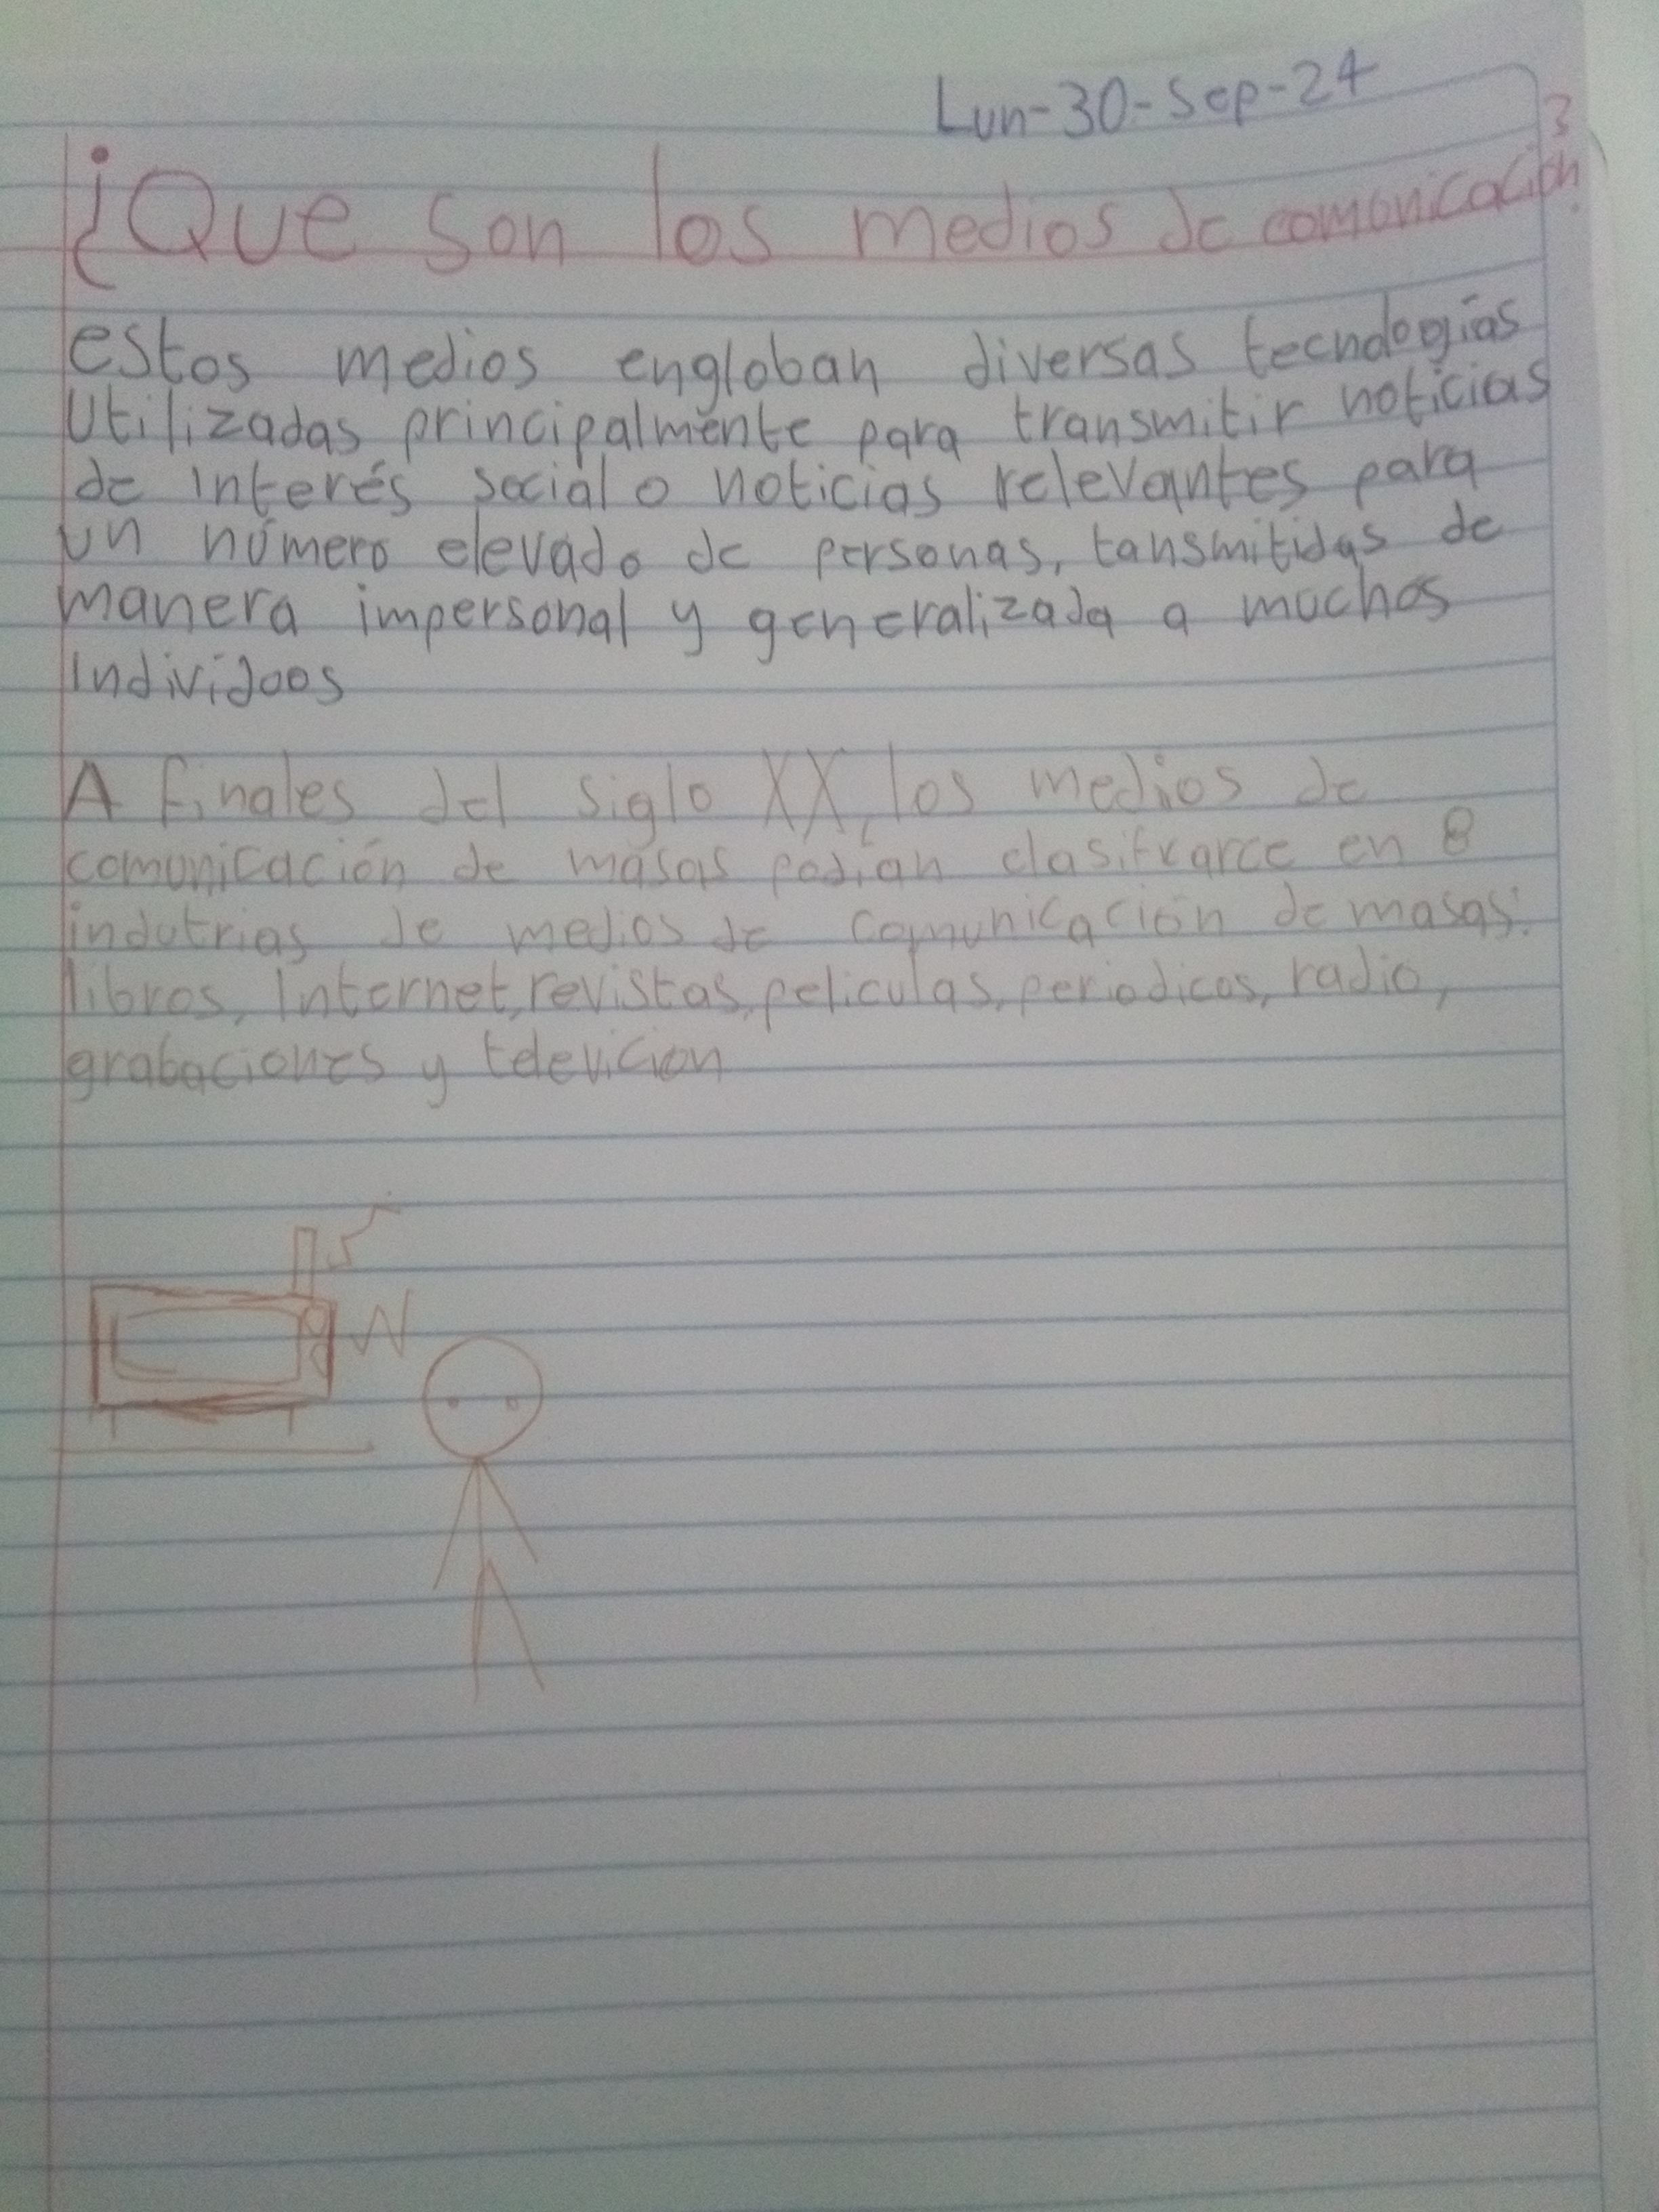 Lun-30-Sep-24
¿Que son los medios de comunicación?
estos medios engloban diversas tecnologías
Utilizadas principalmente para transmitir noticias
de interés social o noticias relevantes para
un número elevado de personas, tansmitidas de
manera impersonal y generalizada a muchos
individuos
A finales del siglo XX, los medios de
comunicación de masas podían clasificarce en 8
indutrias de medios de comunicación de masas:
libros, Internet, revistas, peliculas, periodicos, radio,
grabaciones y televicion